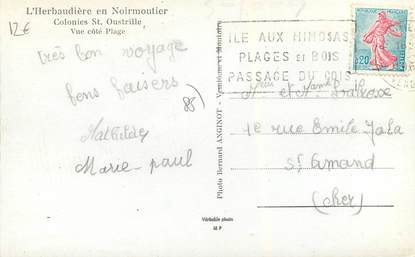 12€
L'Herbaudière en Noirmoutier
Colonies St. Oustrille
Vue côté Plage
très bon voyage
bons baisers
Mathilde
Marie-paul
85
Photo Bernard ANGINOT - Vendôme et Moutoire
Véritable photo
M P
ILE AUX MIMOSAS
PLAGES ET BOIS
PASSAGE DU GOIS
0,20
et
1e rue Emile Zola
St Amand
(Cher)